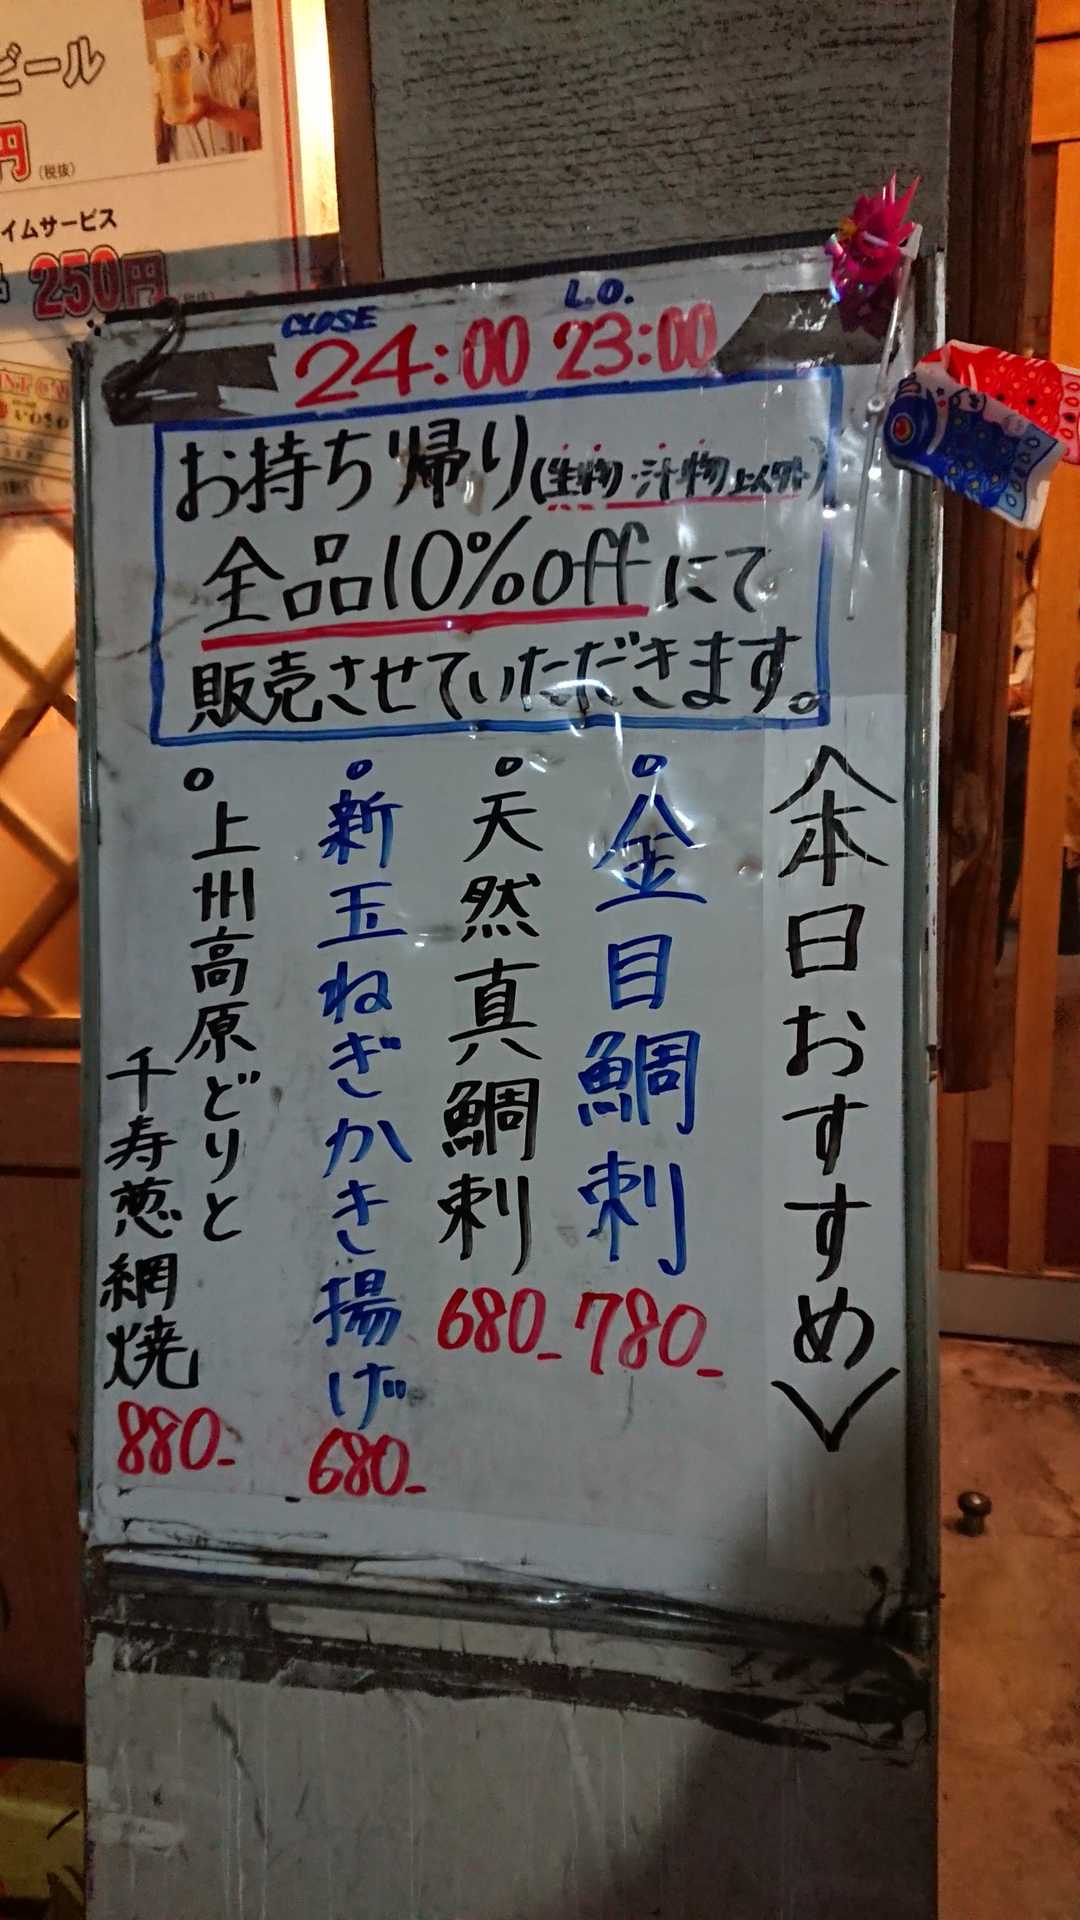 ビール
円(税抜)
イムサービス
250円
CLOSE L.O.
24:00 23:00
お持ち帰り(生物・汁物以外)
全品10%offにて
販売させていただきます。
〈本日おすすめ〉
○金目鯛刺 780-
○天然真鯛刺 680-
○新玉ねぎかき揚げ 680-
○上州高原どりと
千寿葱網焼 880-